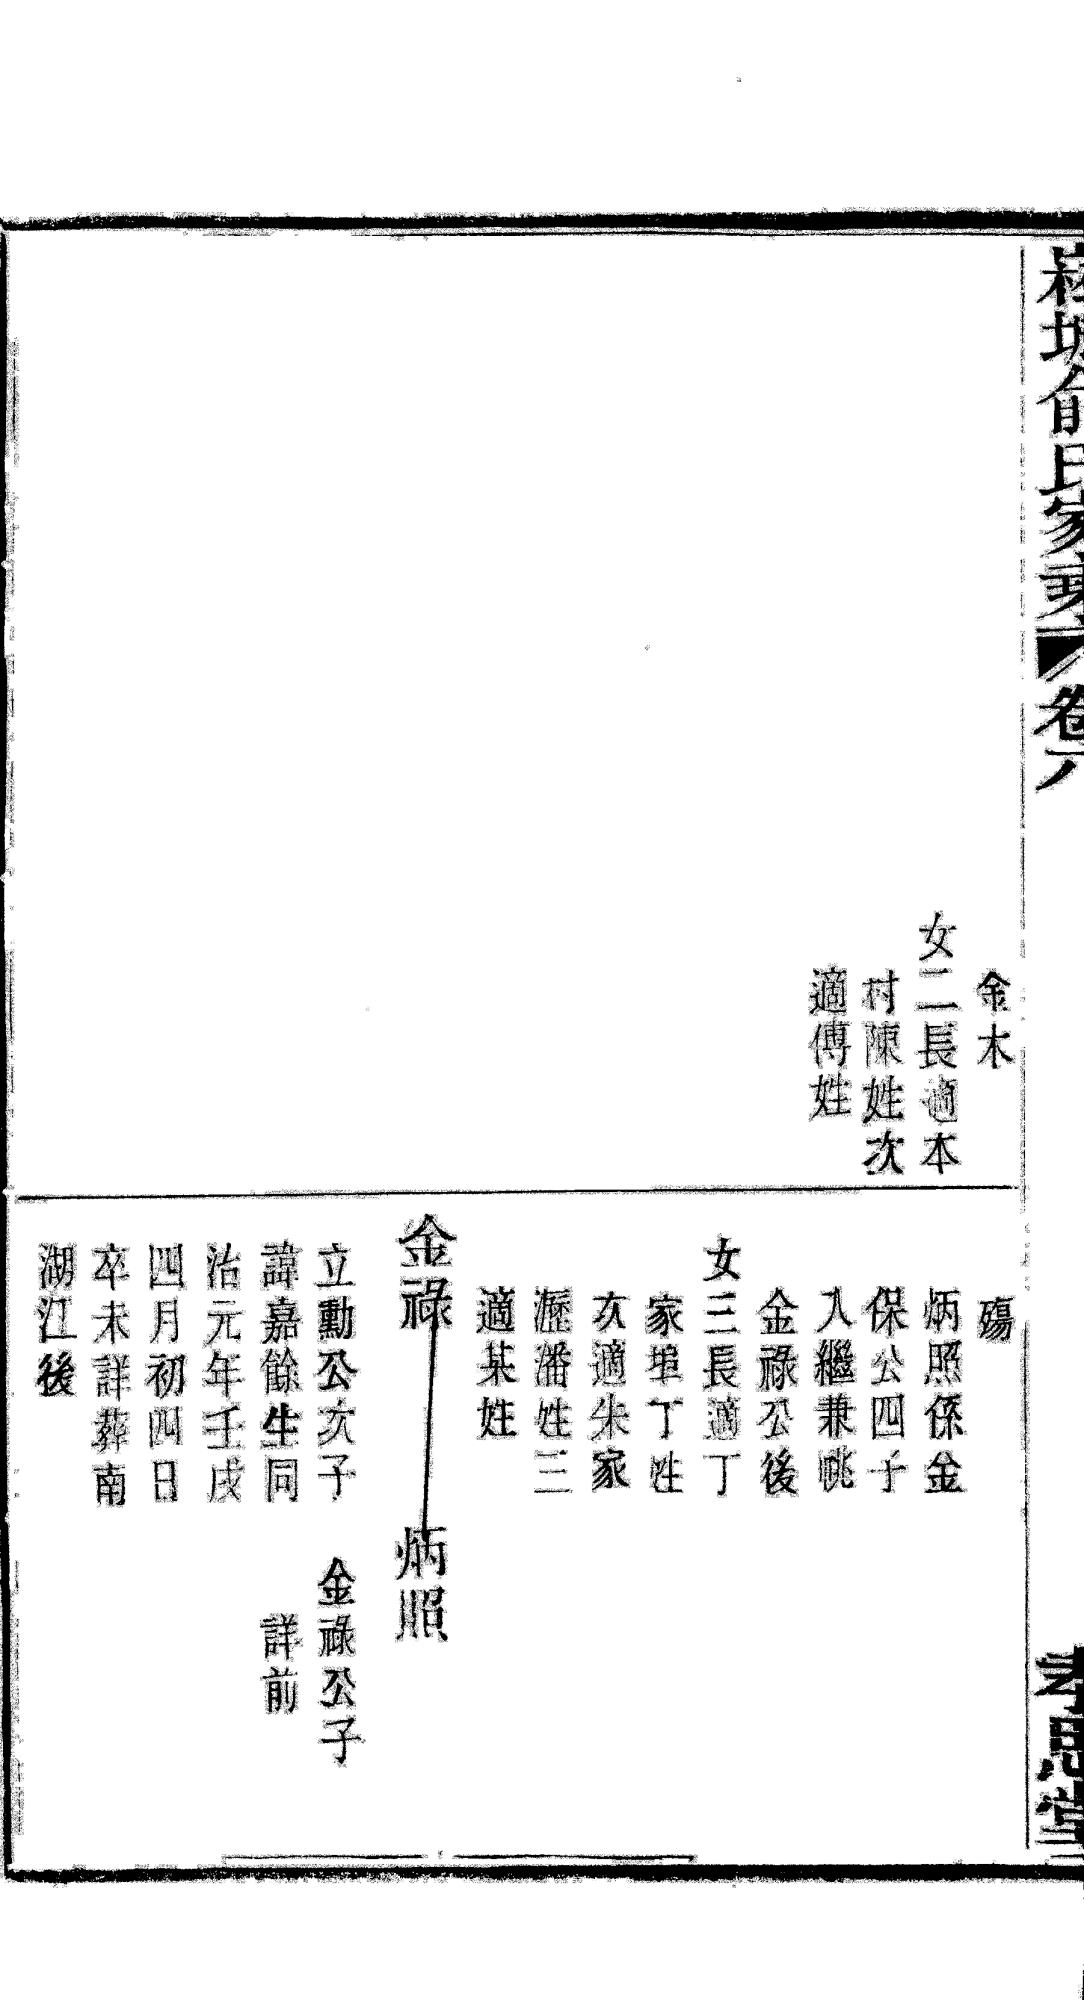 俞氏家乘 卷八
孝思堂
金木
女二長適本
村陳姓次
適傅姓
殤
炳照係金
保公四子
入繼兼祧
金祿公後
女三長適丁
家埠丁姓
次適朱家
瀝潘姓三
適某姓
金祿
炳照
立勳公次子
諱嘉餘生同
治元年壬戌
四月初四日
卒未詳葬南
湖江後
金祿公子
詳前